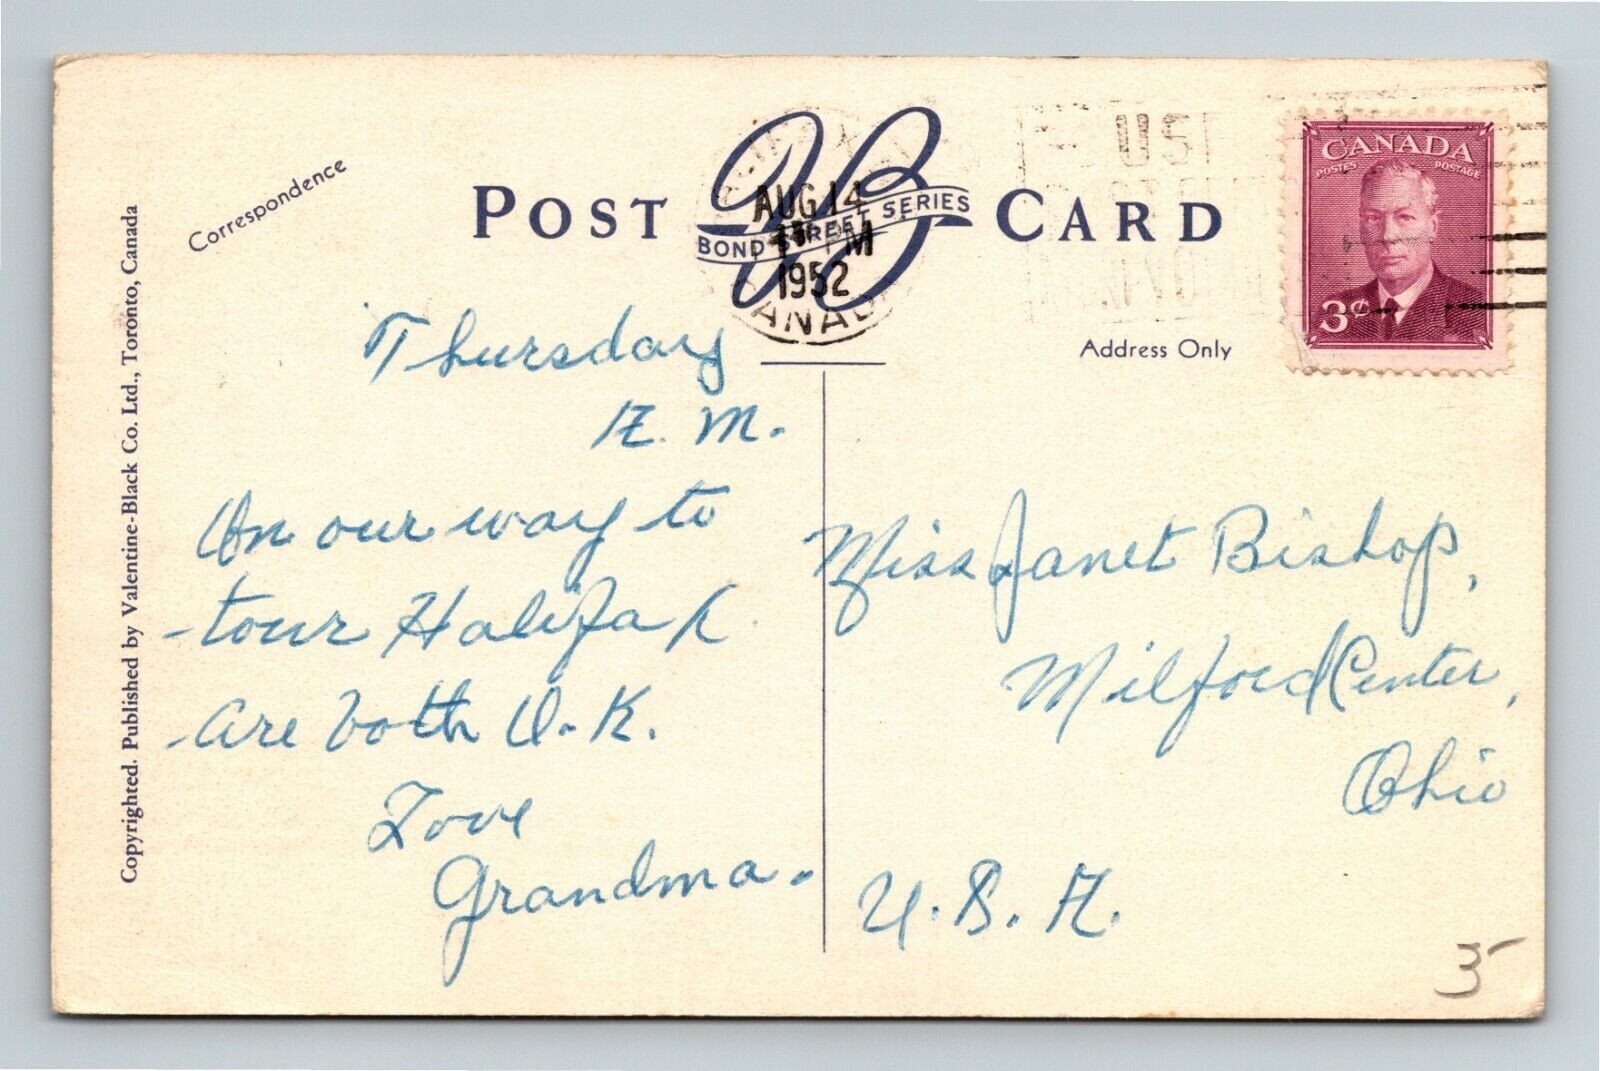 Correspondence
POST CARD
BOND STREET SERIES
AUG 14
PM
1952
CANADA
USE
CANADA
POSTES POSTAGE
3¢
Address Only
Copyrighted. Published by Valentine-Black Co. Ltd., Toronto, Canada
Thursday
A. M.
On our way to
tour Halifax.
Are both O.K.
Love
Grandma.
Miss Janet Bishop,
Milford Center,
Ohio
U. S. A.
3